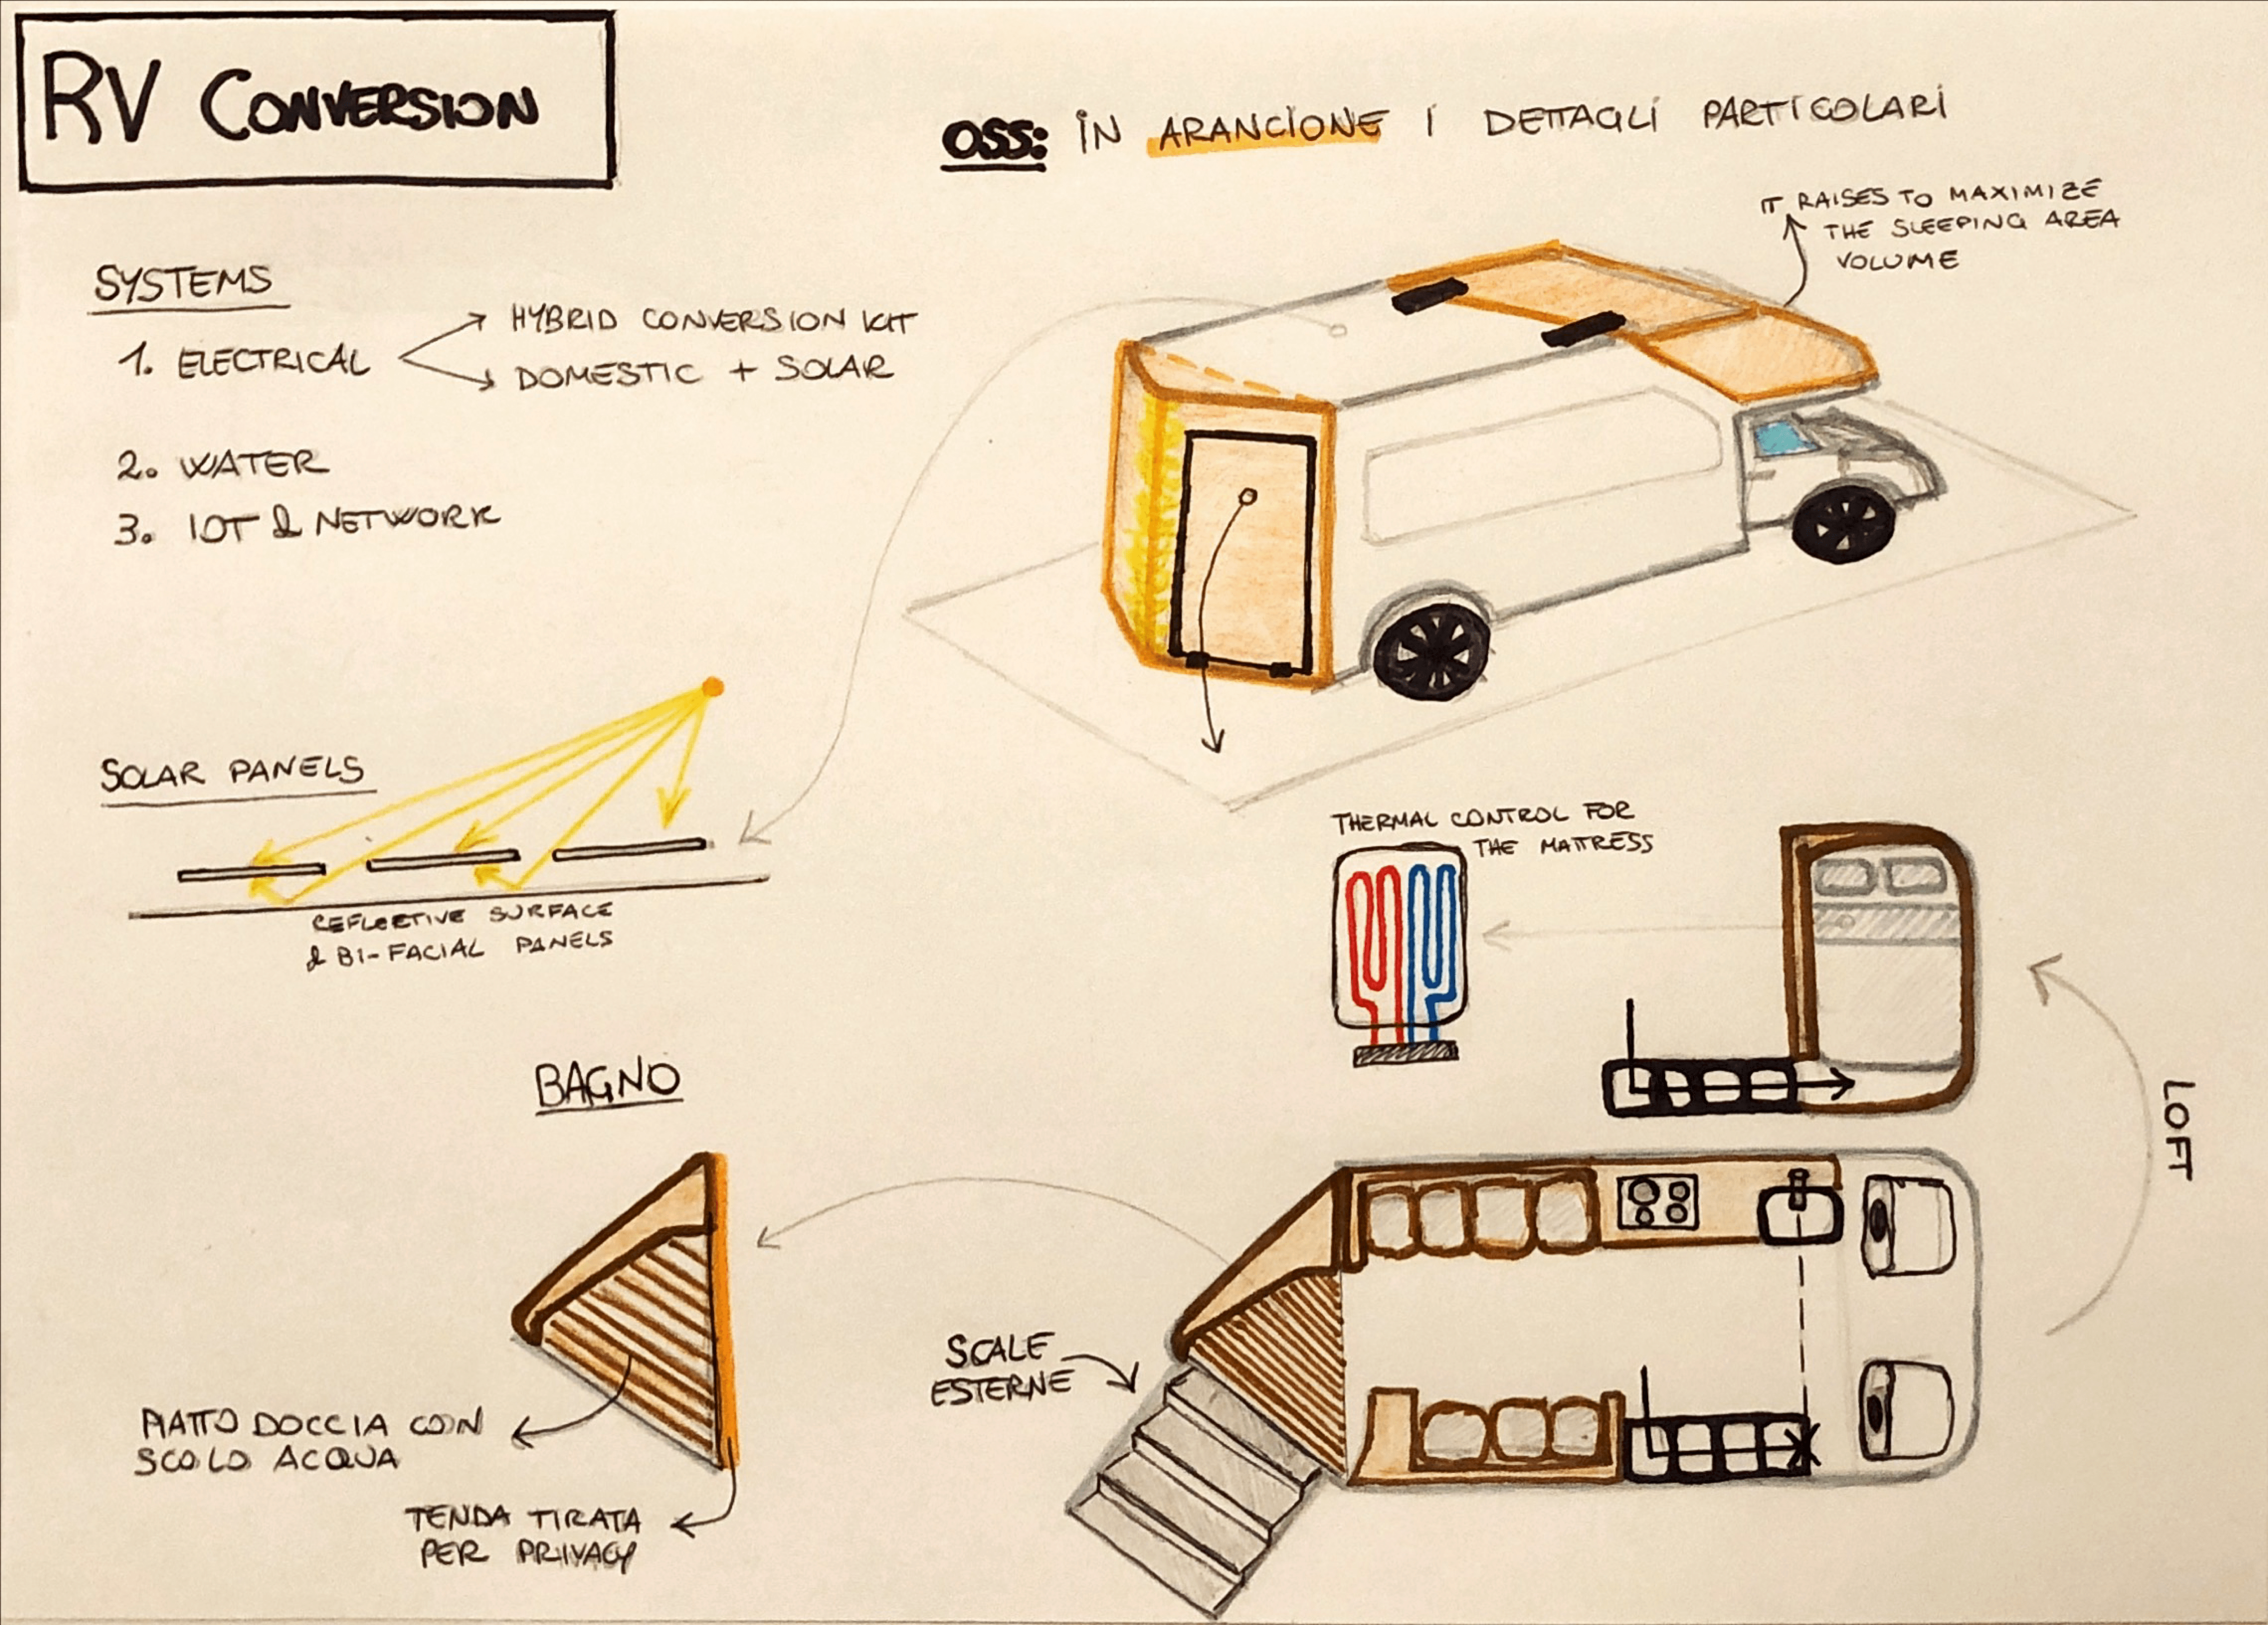 RV CONVERSION
OSS: IN ARANCIONE I DETTAGLI PARTICOLARI
IT RAISES TO MAXIMIZE
THE SLEEPING AREA
VOLUME
SYSTEMS
1. ELECTRICAL
HYBRID CONVERSION KIT
DOMESTIC + SOLAR
2. WATER
3. IOT & NETWORK
SOLAR PANELS
REFLECTIVE SURFACE
& BI-FACIAL PANELS
THERMAL CONTROL FOR
THE MATTRESS
LOFT
BAGNO
PIATTO DOCCIA CON
SCOLO ACQUA
TENDA TIRATA
PER PRIVACY
SCALE
ESTERNE